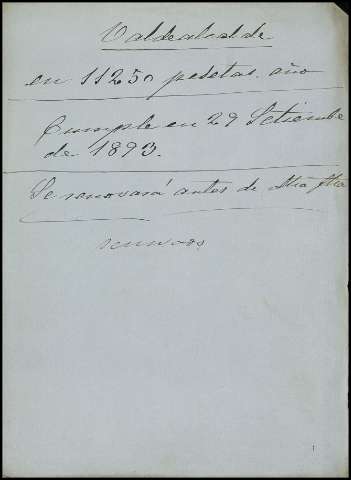 Valdealcalde
en 11250 pesetas año
Cumple en 29 Setiembre
de 1893.
Se renovará antes de dha fha